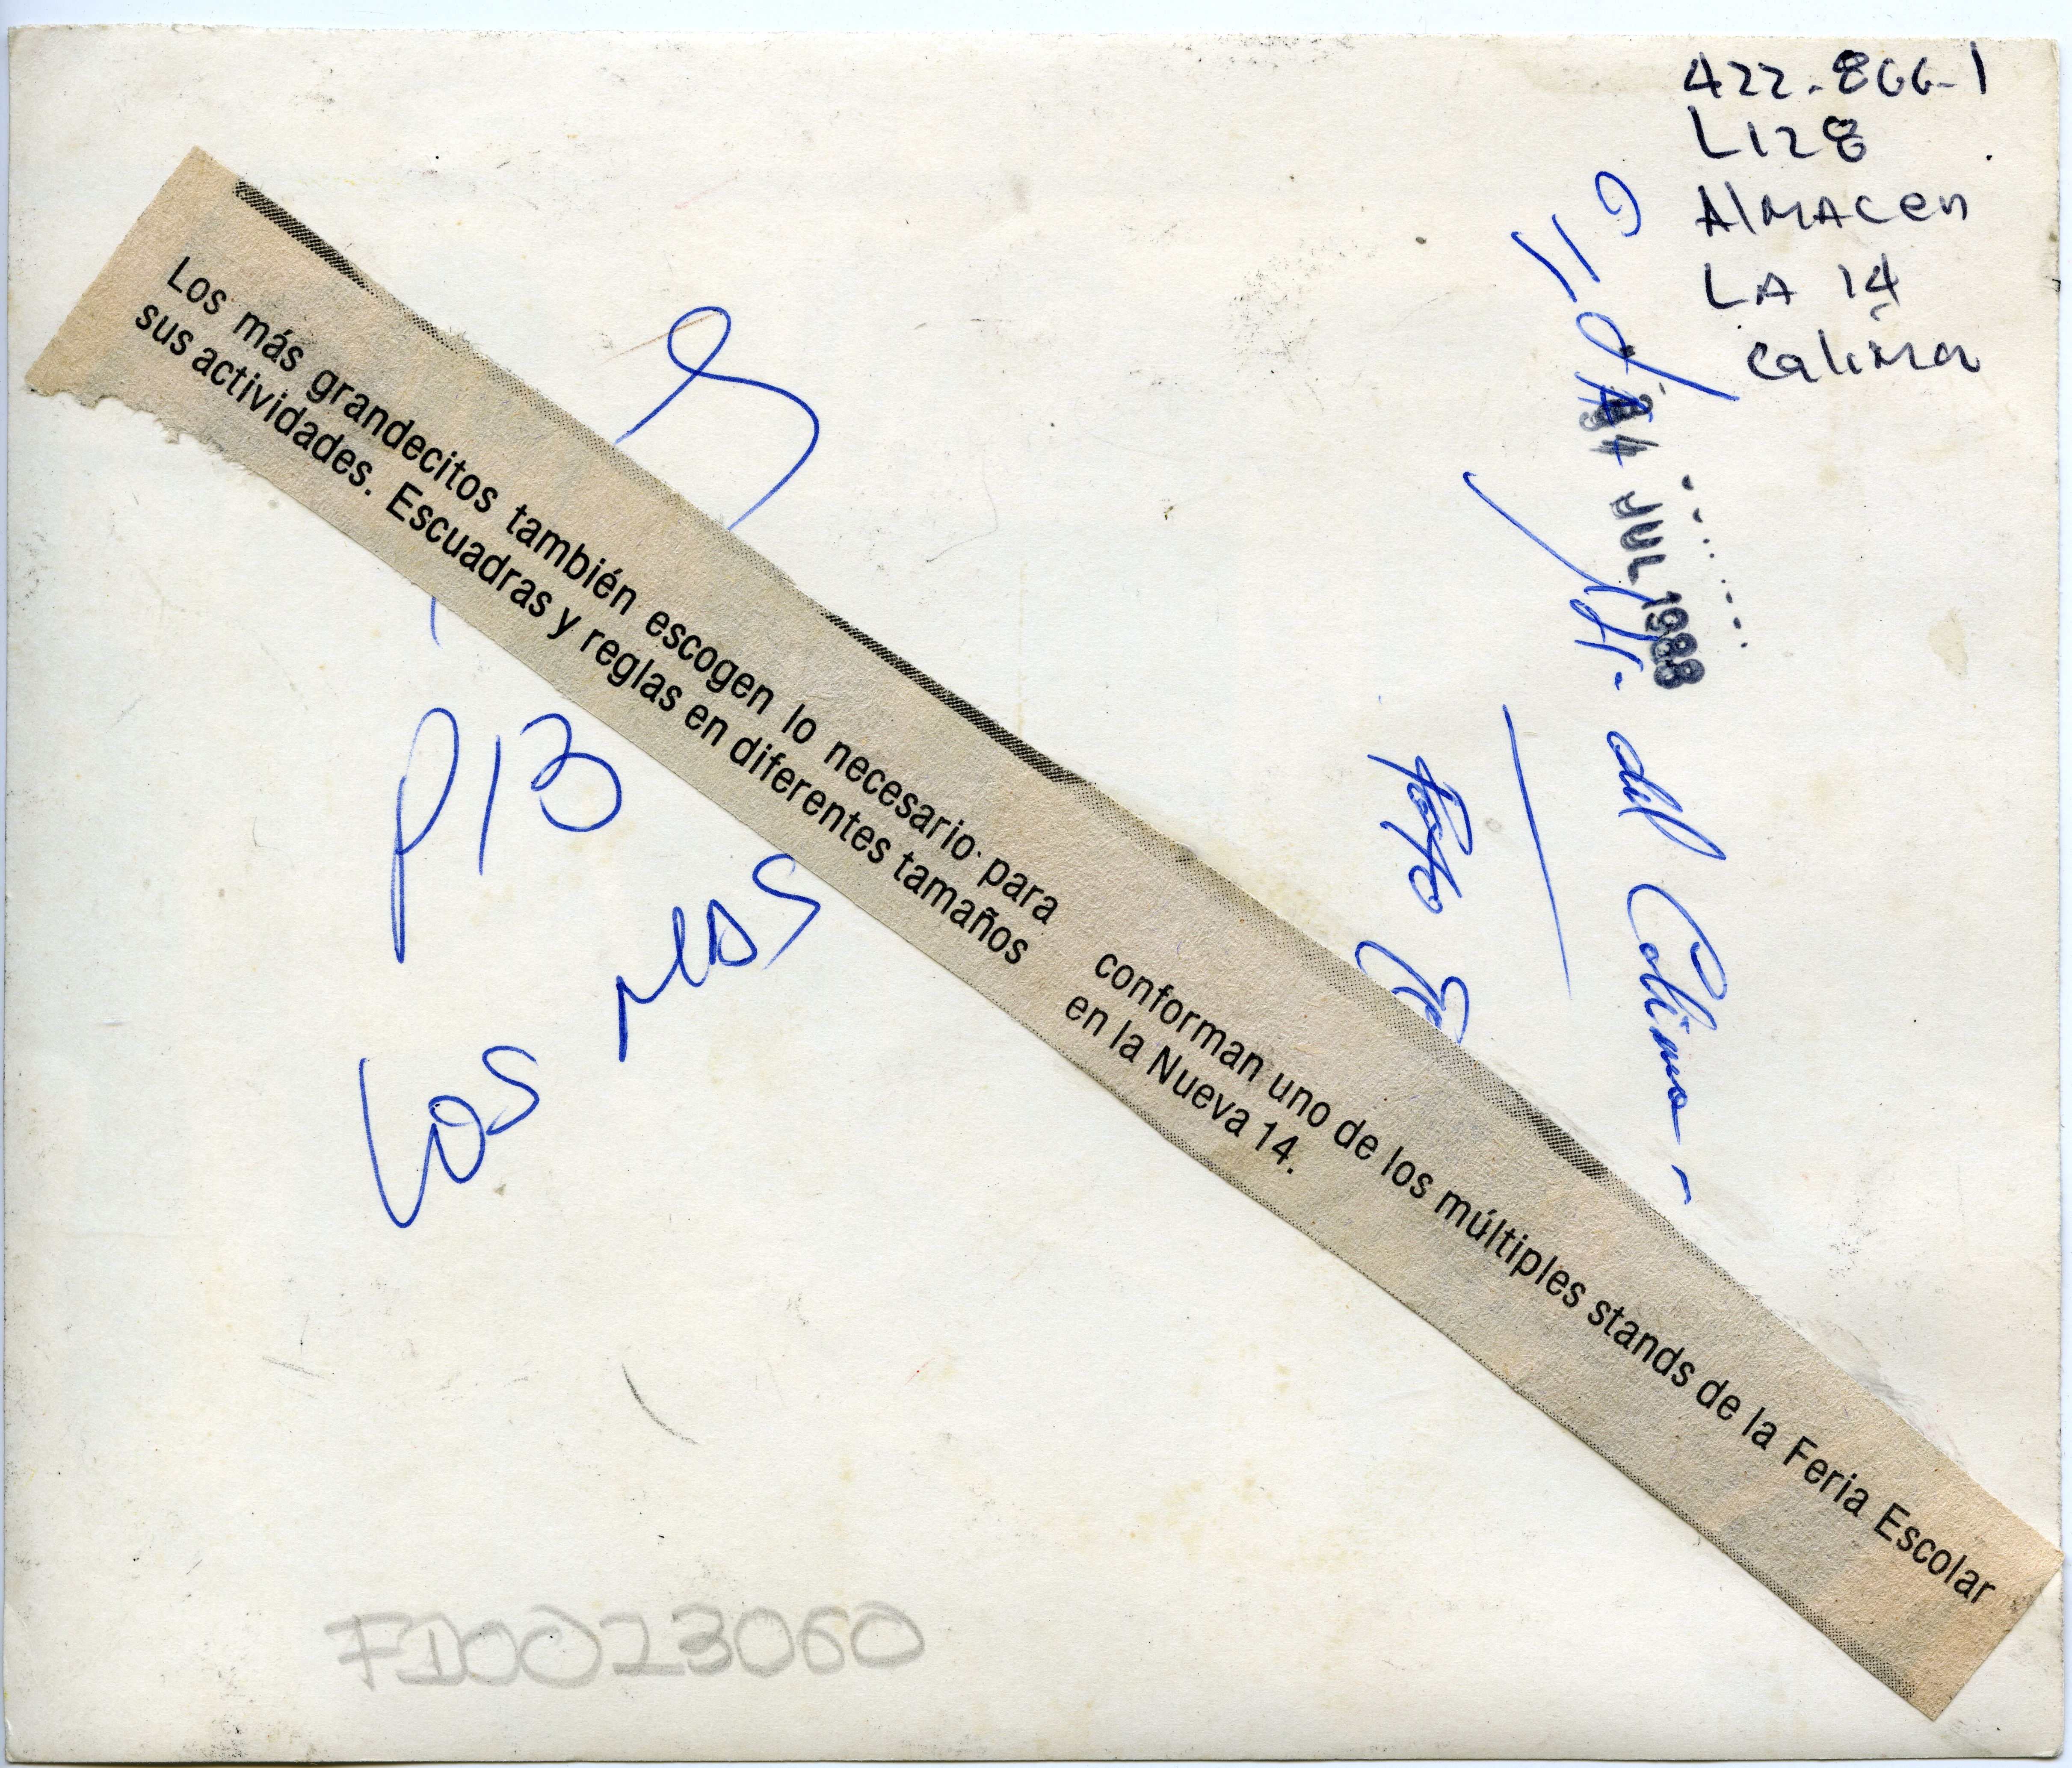 422-866-1
L128
AlMACen
LA 14
Calima
JUL 1988
del Calima
Foto
Los más grandecitos también escogen lo necesario para
sus actividades. Escuadras y reglas en diferentes tamaños
conforman uno de los múltiples stands de la Feria Escolar
en la Nueva 14.
P13
Los MAS
FD0023060